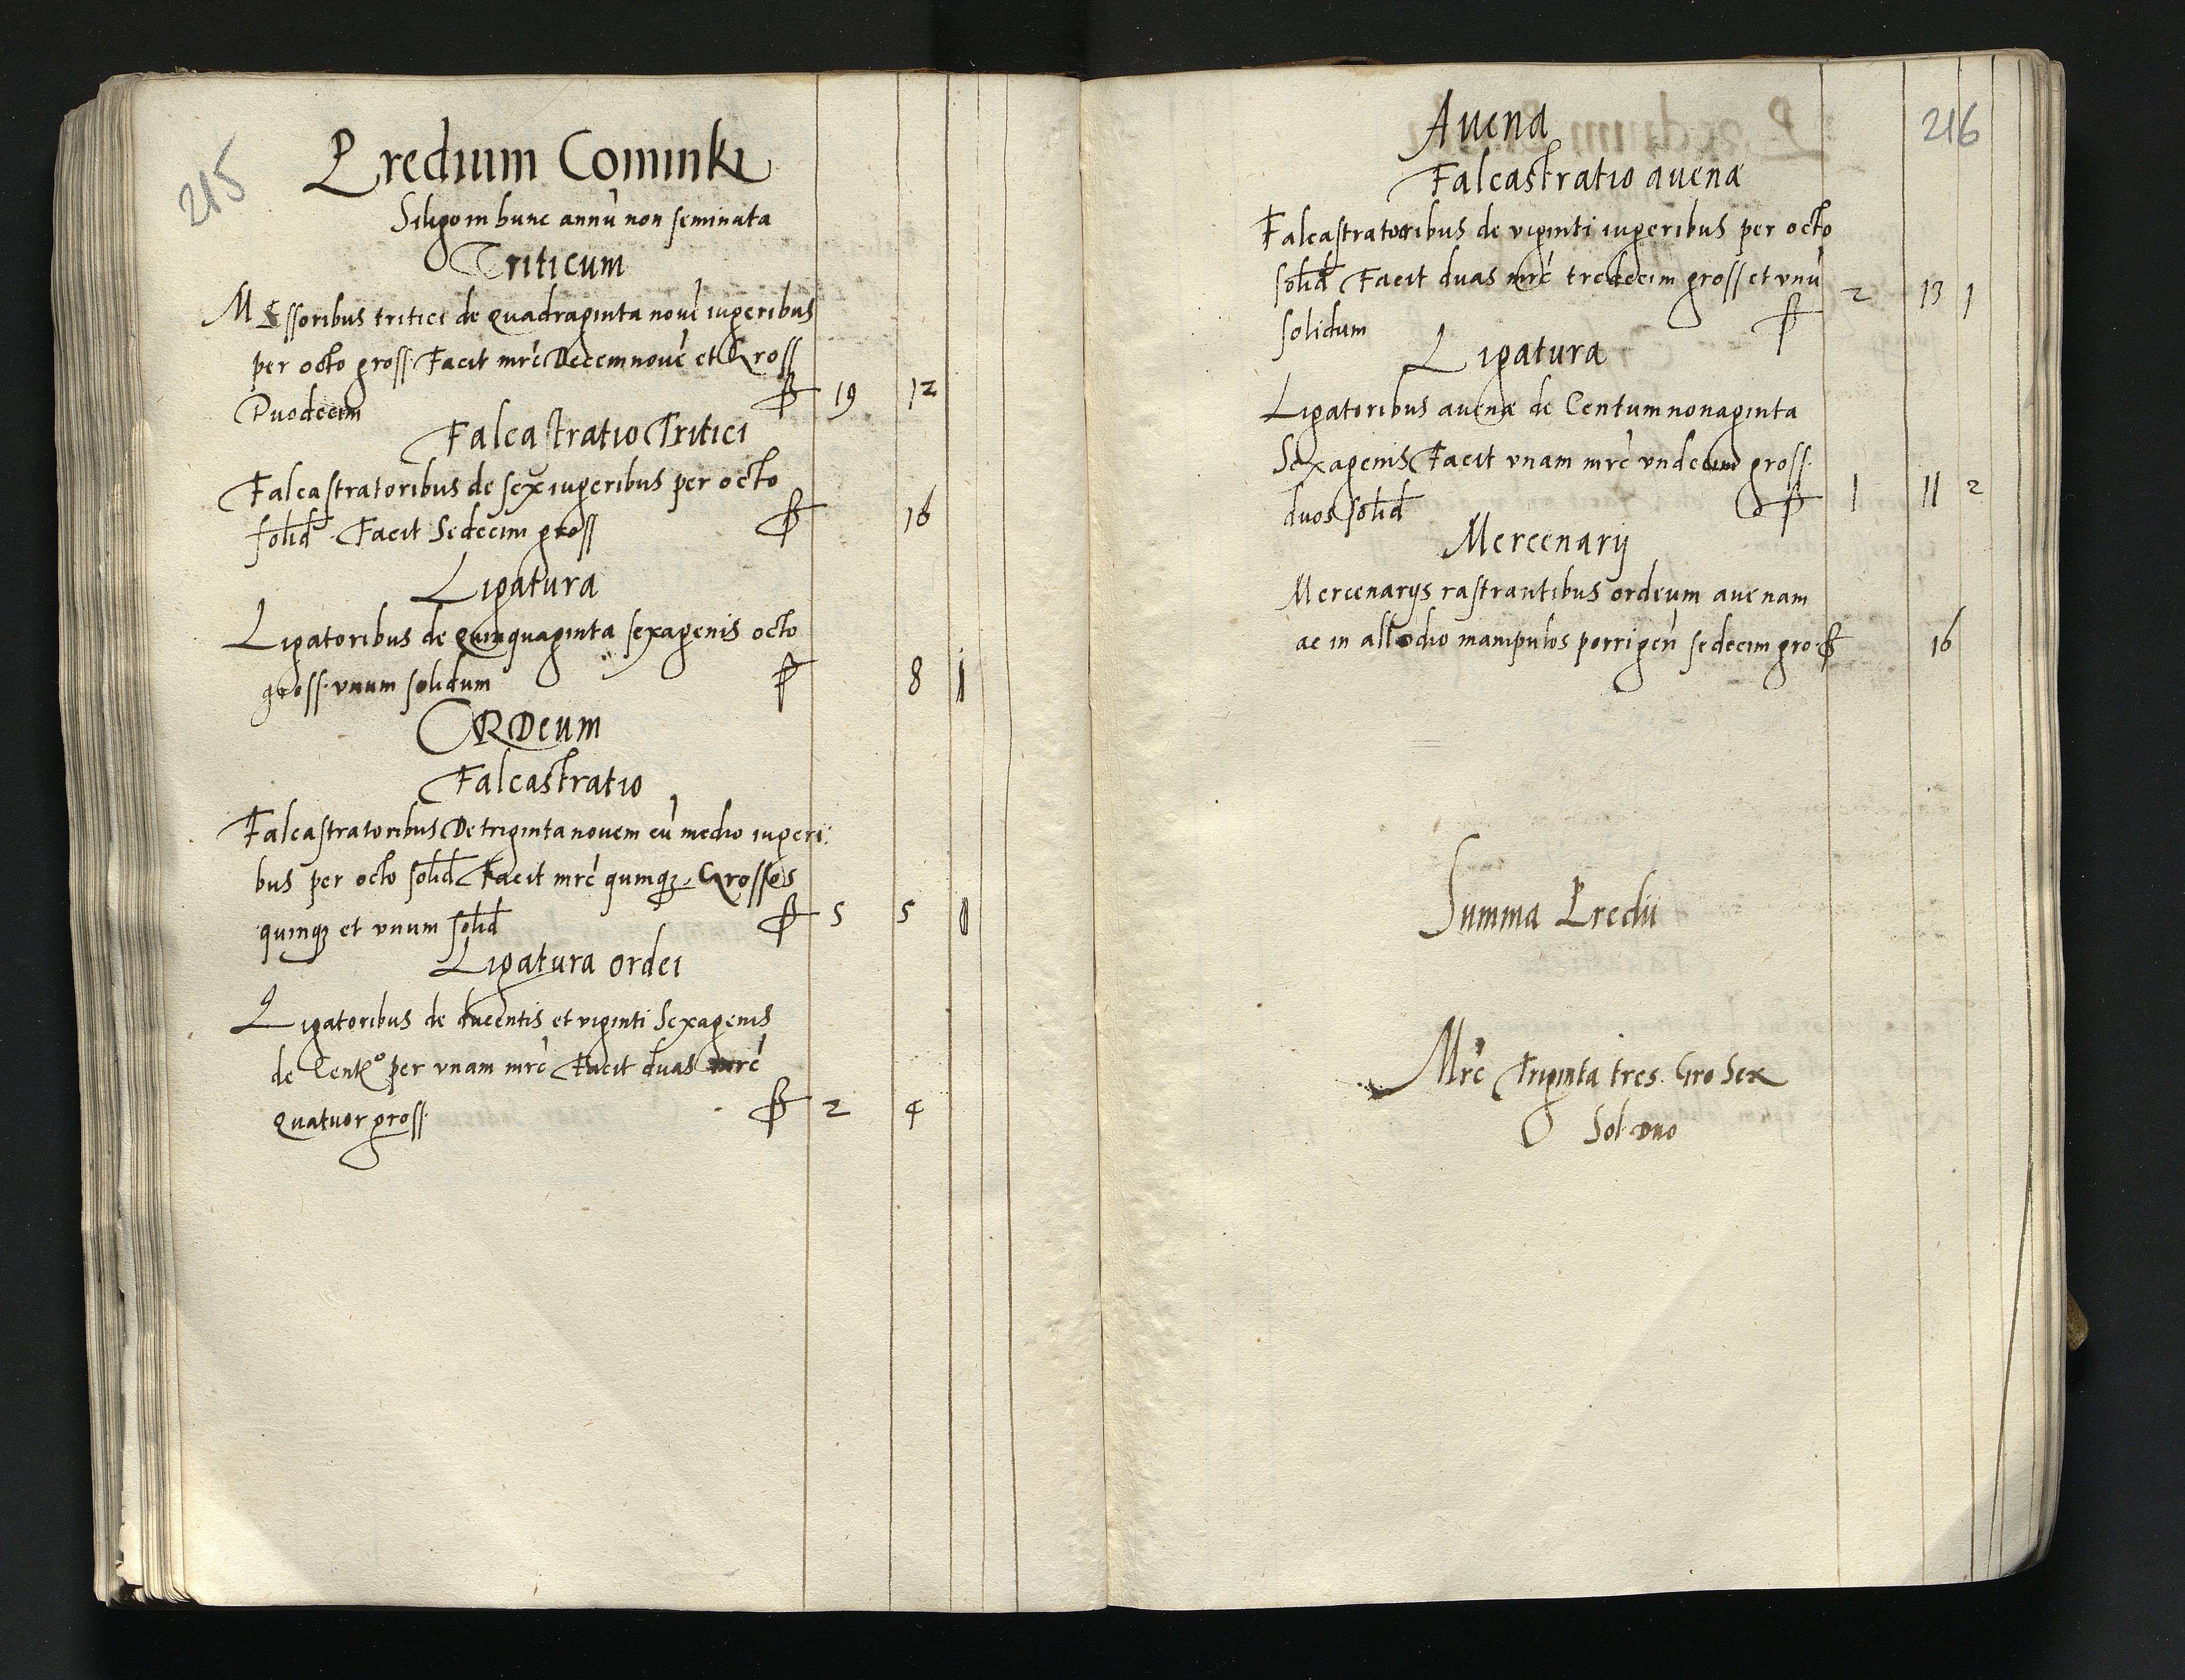 215
Predium Cominki
Siligo in hunc annu non seminata
Triticum
Messoribus tritici de quadraginta nove iugeribus
per octo gross. Facit mrc Decemnove et Gross
Duodecim ꝑ 19 12
Falcastratio Tritici
Falcastratoribus de sex iugeribus per octo
solid. Facit Sedecim gross ꝑ 16
Ligatura
Ligatoribus de quinquaginta sexagenis octo
gross. vnum solidum ꝑ 8 1
ORDeum
Falcastratio
Falcastratoribus De triginta novem cu medio iugeri:
bus per octo solid Facit mrc quinqꝫ. Grosses
quinqꝫ et vnum solid ꝑ 5 5 1
Ligatura ordei
Ligatoribus de ducentis et viginti Sexagenis
de Cento per vnam mrc Facit duas mrc
quatuor gross. ꝑ 2 4
216
Auena
Falcastratio auenæ
Falcastratoribus de viginti iugeribus per octo
solid Facit duas mrc tredecim gross et vnu
solidum ꝑ 2 13 1
Ligatura
Ligatoribus auenæ de Centum nonaginta
Sexagenis Facit vnam mrc vndecim gross.
duos solid ꝑ 1 11 2
Mercenarij
Mercenarijs rastrantibus ordeum auenam
ac in allodio manipulos porrigen sedecim gro. ꝑ 16
Summa Predii
Mrc Triginta tres. Gro Sex
Sol duo